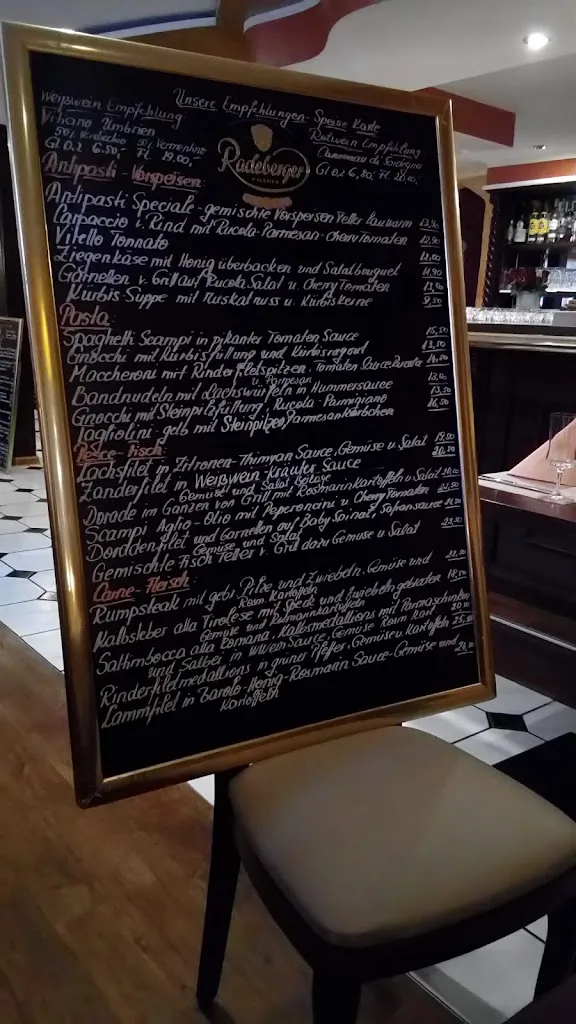 Unsere Empfehlungen - Speise Karte
Weißwein Empfehlung
Vitiano Umbrien
50% Verdicchio 50% Vermentino
Gl 0.2 6.50,- Fl. 19,00,-
Rotwein Empfehlung
Cannonau di Sardegna
Gl 0.2 6,80,-
Radeberger
PILSNER
Antipasti - Vorspeisen:
Antipasti Speciale - gemischte Vorspeisen Teller Lauwarm
Carpaccio v. Rind mit Rucola-Parmesan-cherry Tomaten
Vitello Tonnato
Ziegenkäse mit Honig überbacken und Salatbouquet
Garnellen v. Grill auf Rucola Salat u. Cherry Tomaten
Kürbis-Suppe mit Muskatnuss u. Kürbiskerne
Pasta:
Spaghetti Scampi in pikanter Tomaten Sauce
Gnocchi mit Kürbisfüllung und Kürbisragout
Maccheroni mit Rinderfiletspitzen, Tomaten Sauce, Rucola
u. Parmesan
Bandnudeln mit Lachswürfeln in Hummersauce
Gnocchi mit Steinpilzfüllung, Rucola-Parmigiano
Tagliolini-gelb mit Steinpilzen, Parmesankörbchen
Pesce-Fisch:
Lachsfilet in Zitronen-Thymian Sauce, Gemüse u. Salat
Zanderfilet in Weißwein-Kräuter Sauce
Gemüse und Salat
Dorade im Ganzen von Grill mit Rosmarinkartoffeln u. Salat
Scampi Aglio-Olio mit Peperoncini u. Cherry Tomaten
Doradenfilet und Garnelen auf Baby Spinat, Safransauce
Gemüse und Salat
Gemischte Fisch Teller v. Grill dazu Gemüse u. Salat
Carne-Fleisch:
Rumpsteak mit gebr. Pilze und Zwiebeln, Gemüse und
Rosm. Kartoffeln
Kalbsleber alla Tirolese mit Speck und Zwiebeln gebraten
Gemüse und Rosmarinkartoffeln
Saltimbocca alla Romana, Kalbsmedallions mit Parmaschinken
und Salbei in W.Wein Sauce, Gemüse Rosm. Kart.
Rinderfiletmedallions in grüner Pfeffer, Gemüse u. Kartoffeln
Lammfilet in Barolo-Honig-Rosmarin Sauce-Gemüse und
Kartoffeln